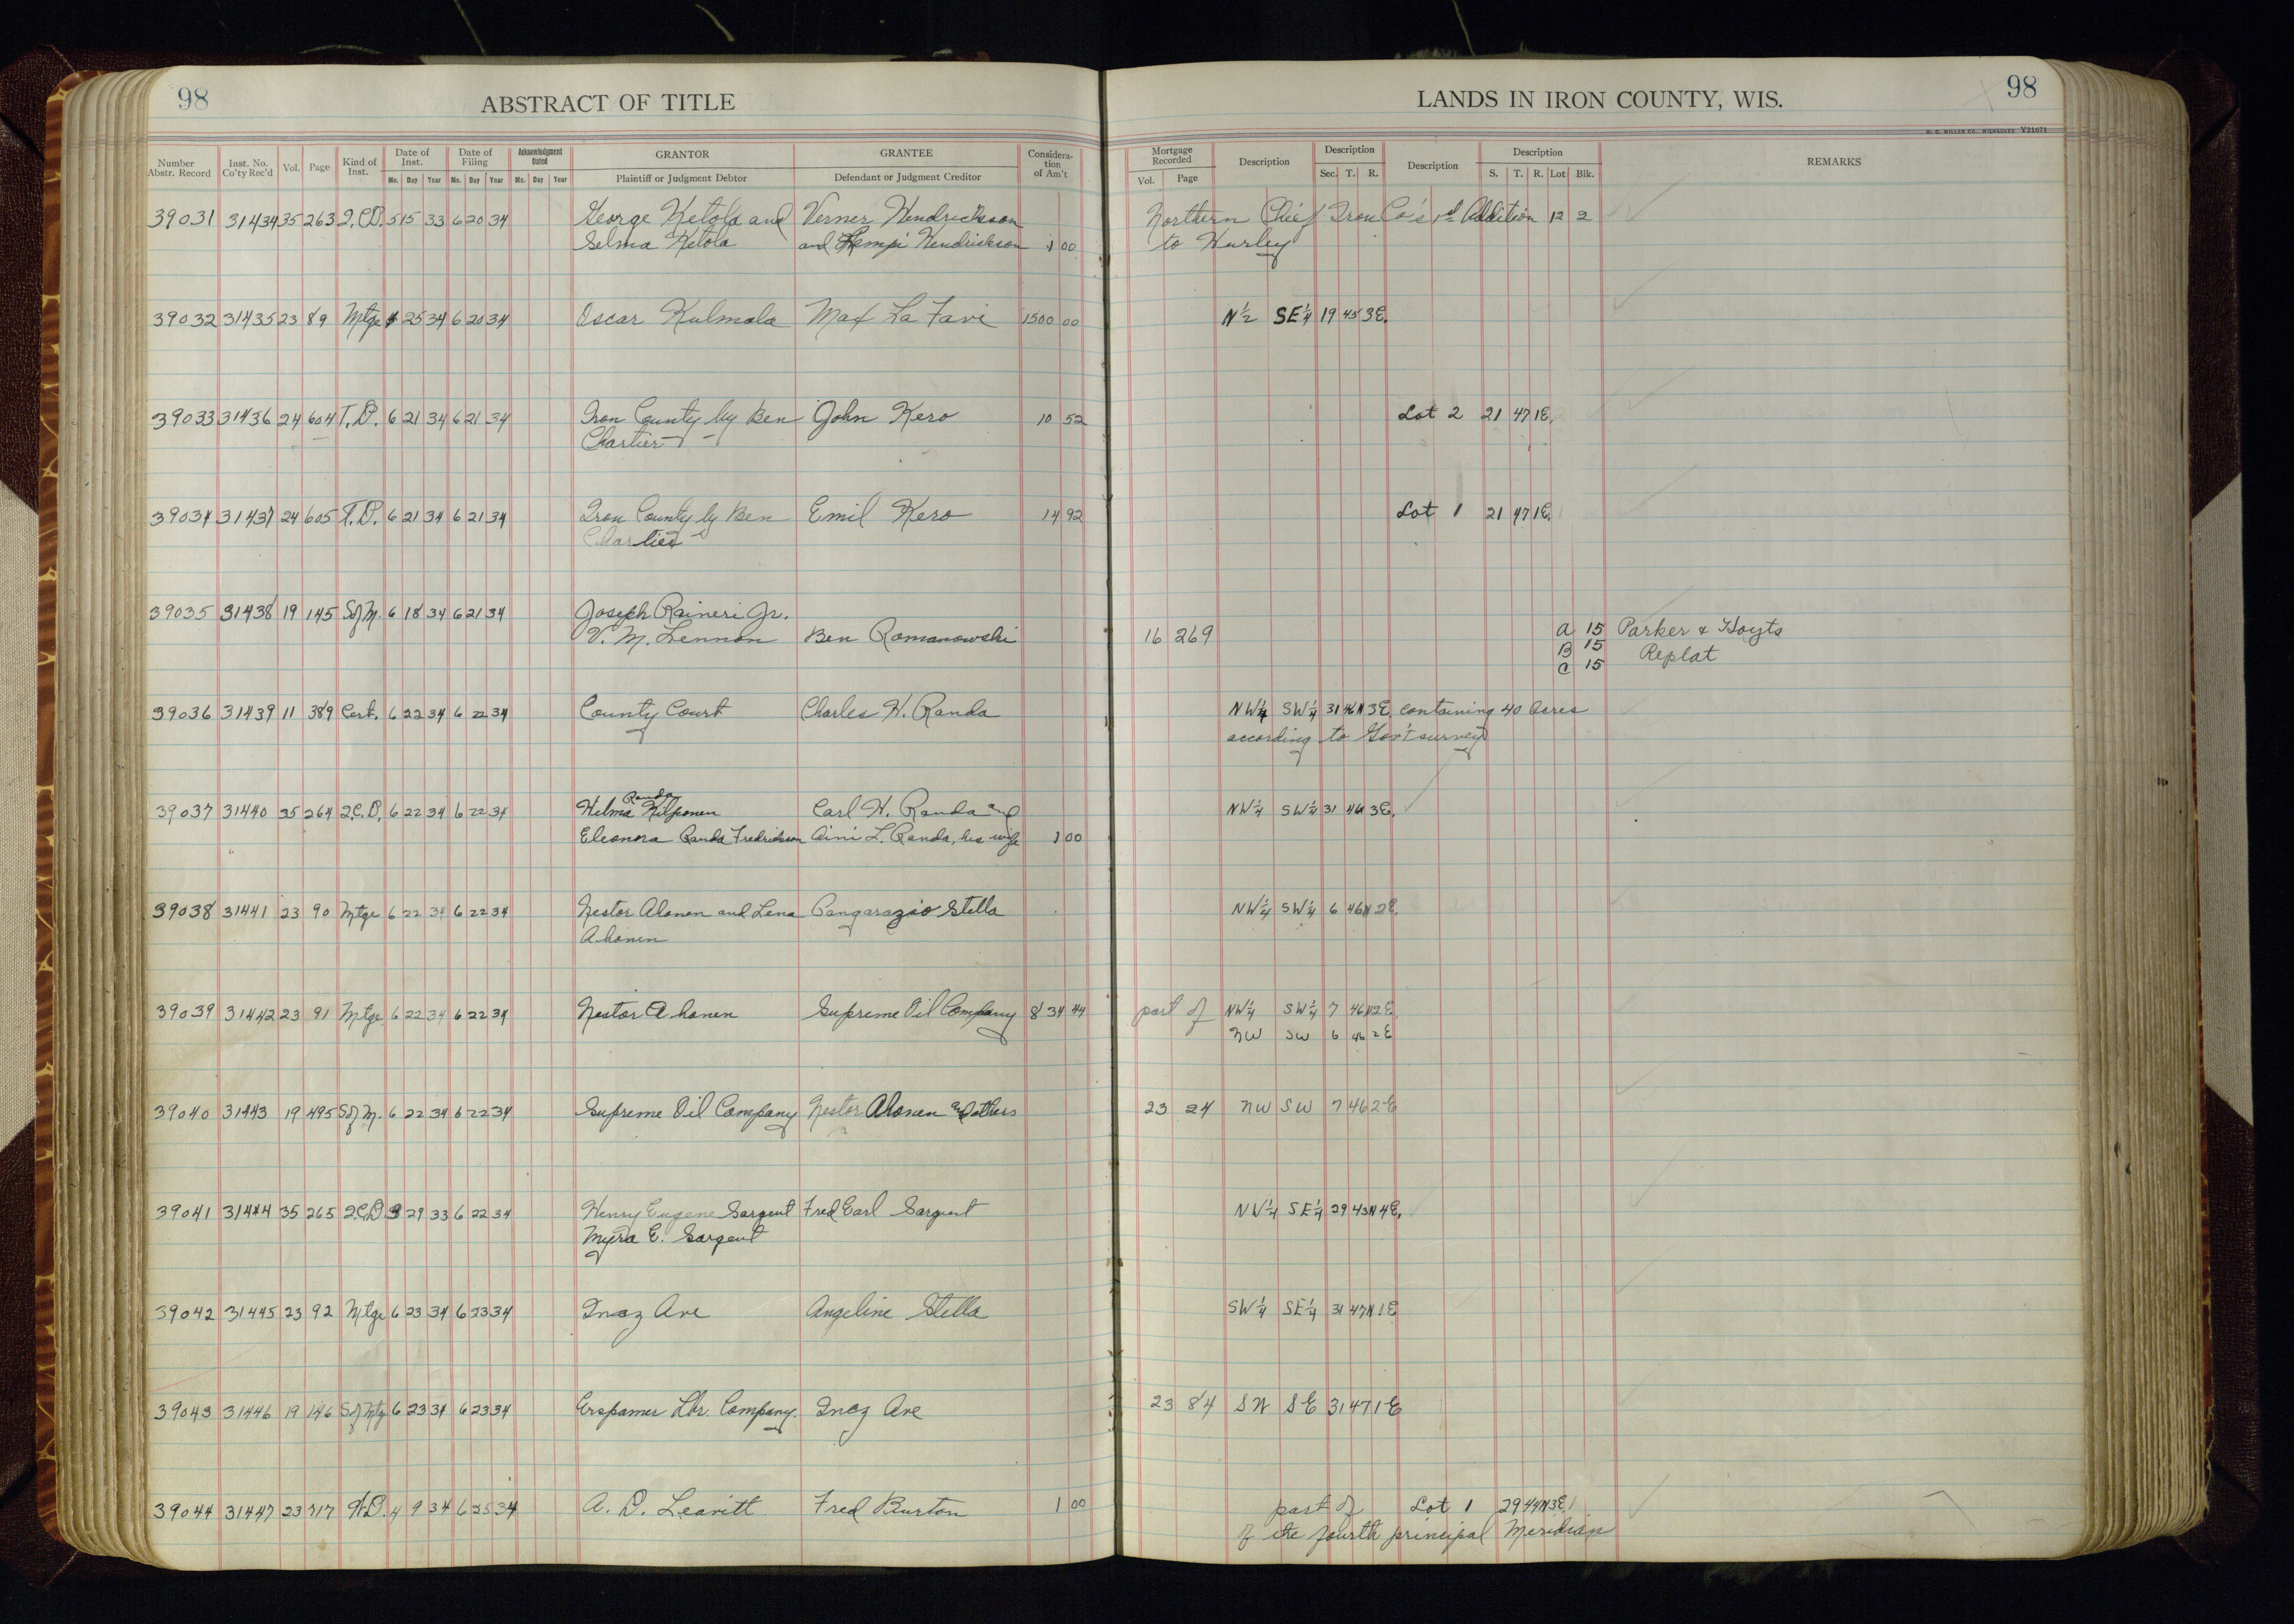 98
ABSTRACT OF TITLE
LANDS IN IRON COUNTY, WIS.
98
H. C. MILLER CO., MILWAUKEE V21671
Number Abstr. Record Inst. No. Co'ty Rec'd Vol. Page Kind of Inst. Date of Inst. Mo. Day Year Date of Filing Mo. Day Year Acknowledgment Dated Mo. Day Year GRANTOR Plaintiff or Judgment Debtor GRANTEE Defendant or Judgment Creditor Consideration of Am't
Mortgage Recorded Vol. Page Description Description Sec. T. R. Description Description S. T. R. Lot Blk. REMARKS
39031 31434 35 263 Q.C.D. 5 15 33 6 20 34 George Ketola and Verner Hendrickson Northern Chief Iron Co's 1st Addition 12 2
Selma Ketola and Hempi Hendrickson 1 00 to Hurley
39032 31435 23 89 Mtge 25 34 6 20 34 Oscar Kulmala Max La Favi 1500 00 N½ SE¼ 19 45 3E.
39033 31436 24 604 T.D. 6 21 34 6 21 34 Iron County by Ben John Kero 10 52 Lot 2 21 47 1E.
Chartier
39034 31437 24 605 T.D. 6 21 34 6 21 34 Iron County by Ben Emil Kero 14 92 Lot 1 21 47 1E.
Chartier
39035 31438 19 145 S of M. 6 18 34 6 21 34 Joseph Raineri Jr.
V. M. Lennon Ben Romanowski 16 269 A 15 Parker & Hoyts
B 15 Replat
C 15
39036 31439 11 389 Cert. 6 22 34 6 22 34 County Court Charles W. Randa NW¼ SW¼ 31 46N 3E. containing 40 acres
according to Gov't survey
Randa
39037 31440 35 264 Q.C.D. 6 22 34 6 22 34 Hilma Kilponen Carl W. Randa and NW¼ SW¼ 31 46 3E.
Eleonora Randa Fredrickson Aini L. Randa, his wife 1 00
39038 31441 23 90 Mtge 6 22 34 6 22 34 Nestor Ahonen and Lena Pangarazio Stella NW¼ SW¼ 6 46N 2E.
Ahonen
39039 31442 23 91 Mtge. 6 22 34 6 22 34 Nestor Ahonen Supreme Oil Company 834 44 part of NW¼ SW¼ 7 46N 2E.
NW SW 6 46 2E
39040 31443 19 495 S of M. 6 22 34 6 22 34 Supreme Oil Company Nestor Ahonen and others 23 24 NW SW 7 46 2E
39041 31444 35 265 Q.C.D. 9 29 33 6 22 34 Henry Eugene Sargent Fred Earl Sargent NW¼ SE¼ 29 43N 4E.
Myra E. Sargent
39042 31445 23 92 Mtge 6 23 34 6 23 34 Inez Ave Angeline Stella SW¼ SE¼ 31 47N 1E
39043 31446 19 146 S of Mtg 6 23 34 6 23 34 Erspamer Lbr. Company. Inez Ave 23 84 SW SE 31 47 1E
39044 31447 23 717 W.D. 4 9 34 6 25 34 A. D. Leavitt Fred Burton 1 00 part of Lot 1 29 44N 3E.
of the fourth principal Meridian